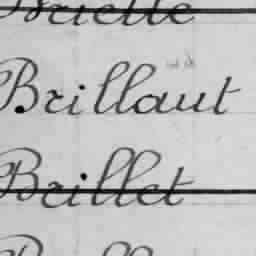 Brielle
Brillaut
Brillet